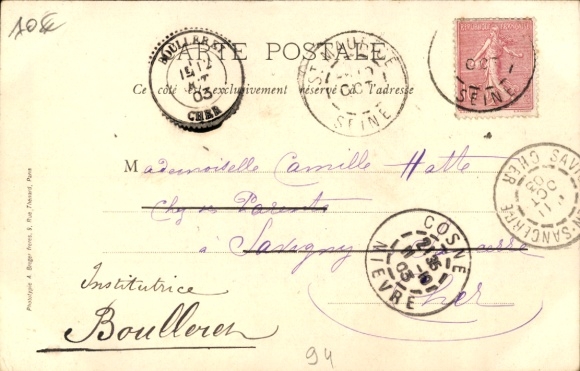 10€
CARTE POSTALE
Ce côté est exclusivement réservé à l'adresse
BOULLERET
15
OCT
03
CHER
OCT
SEINE
OCT
SEINE
Mademoiselle Camille Hatte
Chez ses Parents
à Savigny
Cher
Institutrice
Boulleret
COSNE
03
NIEVRE
OCT
03
CHER
Phototypie A. Breger frères, 9, Rue Thénard, Paris
94